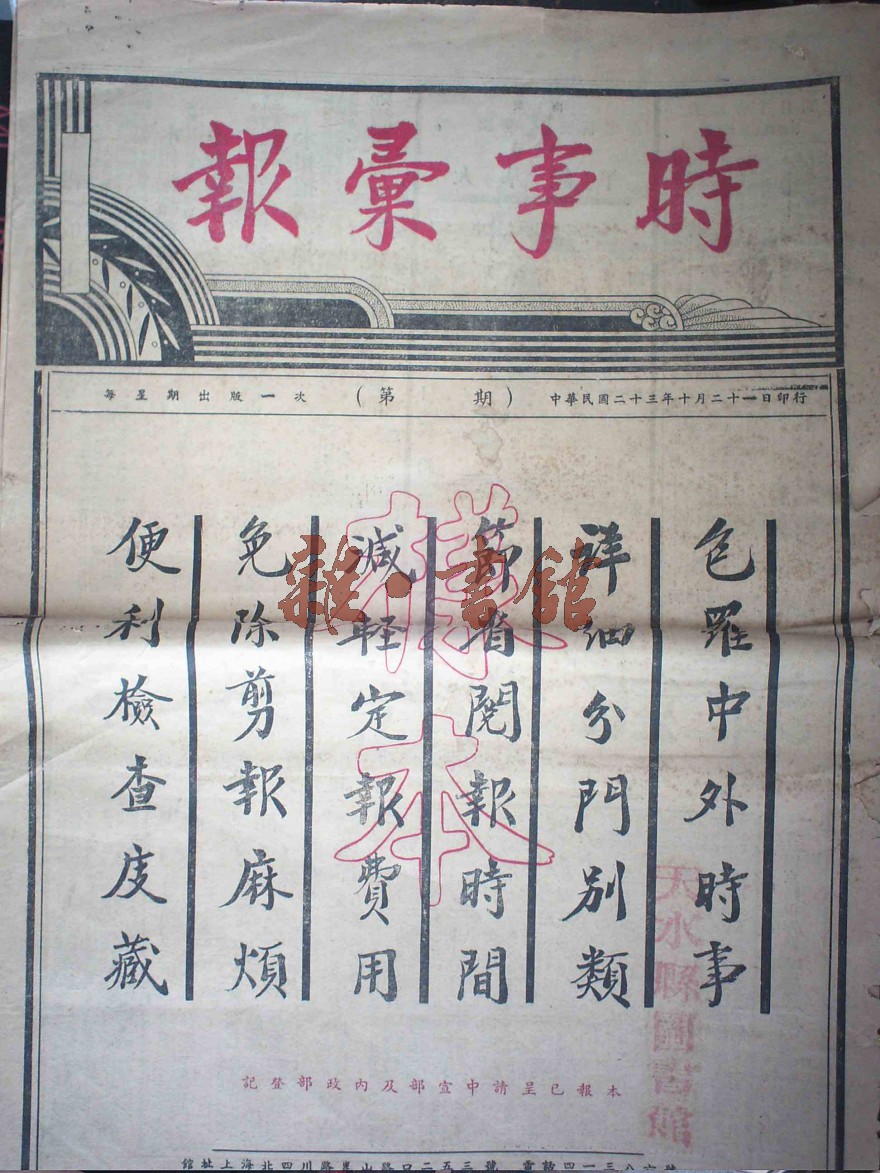 時事彙報
中華民國二十三年十月二十一日印行
(第　期)
每星期出版一次
包羅中外時事
詳細分門別類
節省閱報時間
減輕定報費用
免除剪報麻煩
便利檢查庋藏
樣本
雜·書館
天水縣圖書館
本報已呈請中宣部及內政部登記
館址上海北四川路崇山路口二五三號